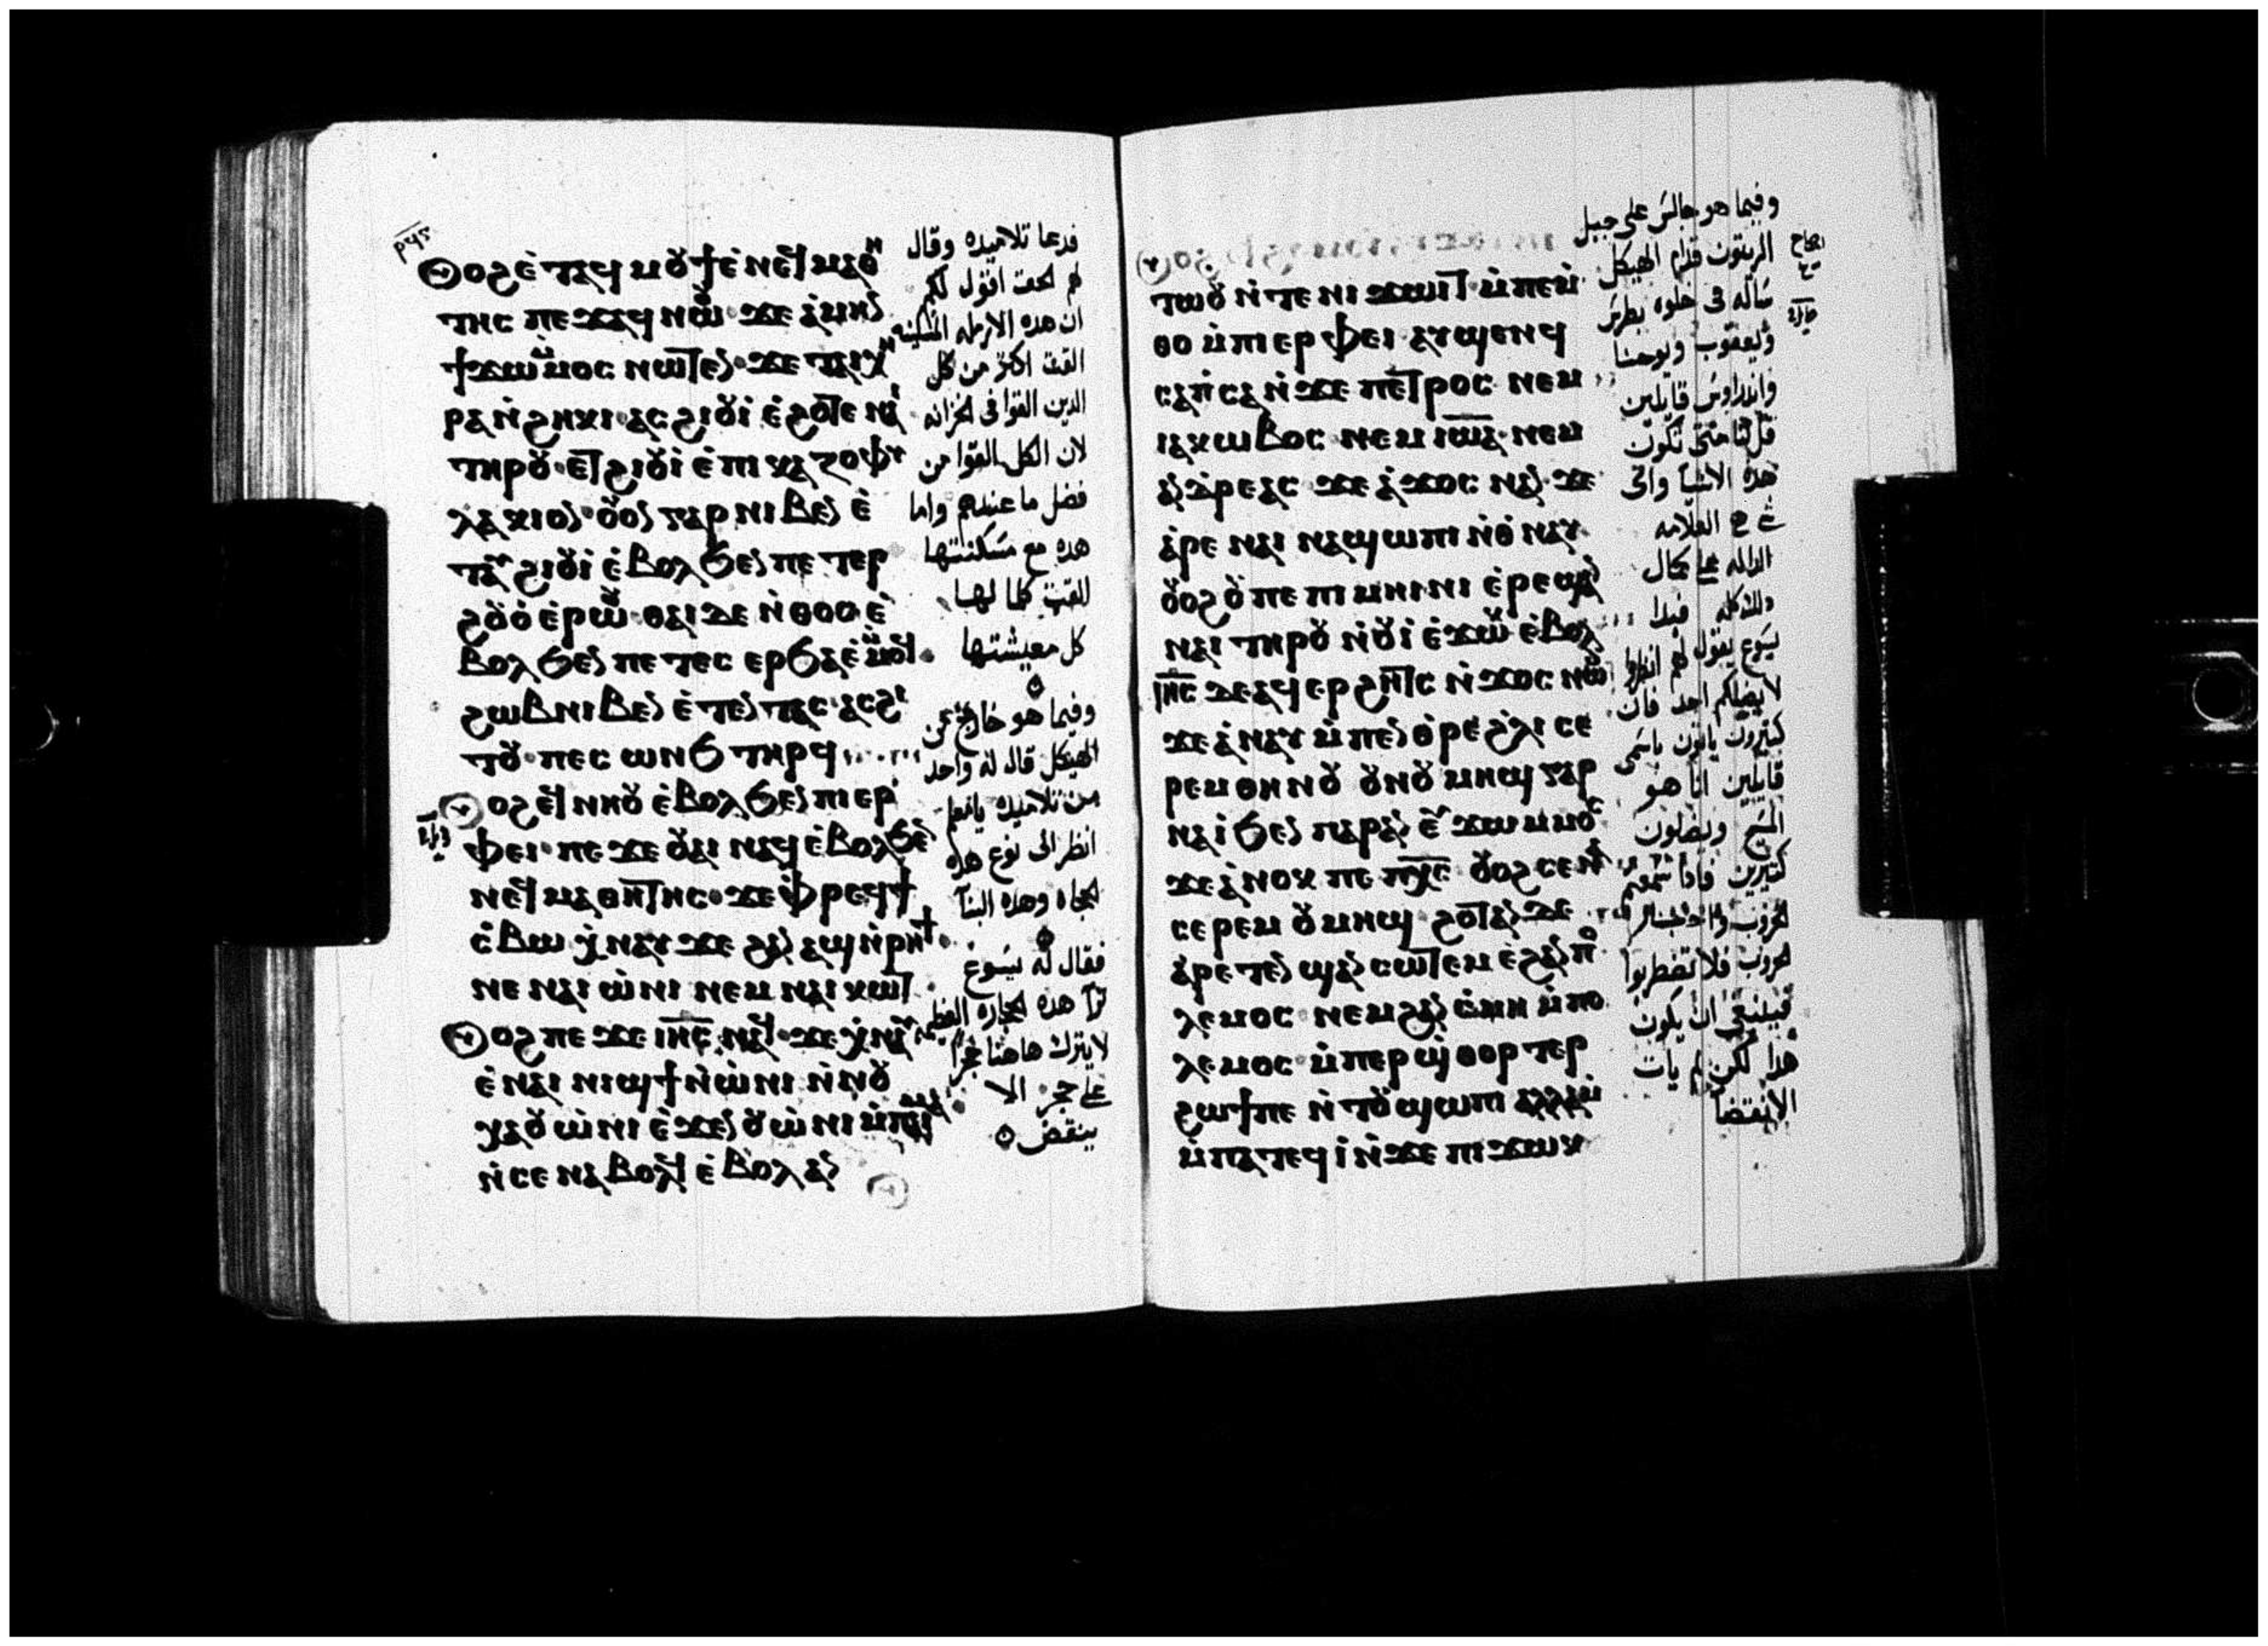 ⲟⲩⲟϩ ⲉⲧⲁϥⲙⲟⲩϯ ⲉⲛⲉϥⲙⲁⲑⲏ
ⲧⲏⲥ ⲡⲉϫⲁϥ ⲛⲱⲟⲩ ϫⲉ ⲁⲙⲏⲛ
ϯϫⲱ ⲙⲙⲟⲥ ⲛⲱⲧⲉⲛ ϫⲉ ⲧⲁⲓⲭⲏ
ⲣⲁ ⲛϩⲏⲕⲓ ⲁⲥϩⲓⲟⲩⲓ ⲉϩⲟⲧⲉ ⲛⲏ
ⲧⲏⲣⲟⲩ ⲉⲧϩⲓⲟⲩⲓ ⲉⲡⲓⲅⲁⲍⲟⲫⲩ
ⲗⲁⲕⲓⲟⲛ
ϩⲓⲟⲩⲓ ⲉⲃⲟⲗ ϧⲉⲛ ⲡⲉⲧⲉⲣ
ϩⲟⲩⲟ ⲉⲣⲱⲟⲩ ⲑⲁⲓ ⲇⲉ ⲛⲑⲟⲥ ⲉ
ⲃⲟⲗ ϧⲉⲛ ⲡⲉⲧⲉⲥ ⲉⲣϧⲁⲉ ⲙⲙⲟϥ
ϩⲱⲃ ⲛⲓⲃⲉⲛ ⲉⲧⲉⲛⲧⲁⲥ ⲁⲥϩⲓ
ⲧⲟⲩ ⲡⲉⲥⲱⲛϧ ⲧⲏⲣϥ
ⲟⲩⲟϩ ⲉϥⲛⲏⲟⲩ ⲉⲃⲟⲗ ϧⲉⲛ ⲡⲓⲉⲣ
ⲫⲉⲓ ⲡⲉϫⲉ ⲟⲩⲁⲓ ⲛⲁϥ ⲉⲃⲟⲗ ϧⲉⲛ
ⲛⲉϥⲙⲁⲑⲏⲧⲏⲥ ϫⲉ ⲫⲣⲉϥϯ
ⲥⲃⲱ ⲭⲛⲁⲩ ϫⲉ ϩⲁⲛⲁϣ ⲛⲣⲏϯ
ⲛⲉ ⲛⲁⲓⲱⲛⲓ ⲛⲉⲙ ⲛⲁⲓⲕⲱⲧ
ⲟⲩⲟϩ ⲡⲉϫⲉ ⲓⲏⲥ ⲛⲁϥ ϫⲉ ⲭⲛⲁⲩ
ⲉⲛⲁⲓⲛⲓϣϯ ⲛⲱⲛⲓ ⲛⲛⲟⲩ
ⲭⲁ ⲟⲩⲱⲛⲓ ⲉϫⲉⲛ ⲟⲩⲱⲛⲓ ⲙⲡⲁⲓⲙⲁ
ⲛⲥⲉⲛⲁⲃⲟⲗϥ ⲉⲃⲟⲗ ⲁⲛ
فدعا تلاميذه وقال
لهم الحق اقول لكم
ان هذه الارمله المسكينه
القت اكثر من كل
الذين القوا في الخزانه
لان الكل القوا من
فضل ما عندهم واما
هذه مع مسكنتها
القت كلما لها
كل معيشتها
وفيما هو خارج من
الهيكل قال له واحد
من تلاميذه يا معلم
انظر الى نوع هذه
الحجاره وهذه البنآ
فقال له يسوع
ترآ هذه الحجاره العظيمه
لا يترك هاهنا حجراً
على حجر الا
ينقض
ⲟⲩⲟϩ
ⲧⲱⲟⲩ ⲛⲧⲉ ⲛⲓϫⲱⲓⲧ ⲙⲡⲉⲙ
ⲑⲟ ⲙⲡⲓⲉⲣⲫⲉⲓ ⲁⲩϣⲉⲛϥ
ⲥⲁⲡⲥⲁ ⲛϫⲉ ⲡⲉⲧⲣⲟⲥ ⲛⲉⲙ
ⲓⲁⲕⲱⲃⲟⲥ ⲛⲉⲙ ⲓⲱⲁ ⲛⲉⲙ
ⲁⲛⲇⲣⲉⲁⲥ ϫⲉ ⲁϫⲟⲥ ⲛⲁⲛ ϫⲉ
ⲁⲣⲉ ⲛⲁⲓ ⲛⲁϣⲱⲡⲓ ⲛⲑⲛⲁⲩ
ⲟⲩⲟϩ ⲟⲩ ⲡⲉ ⲡⲓⲙⲏⲓⲛⲓ ⲉⲣⲉϣⲁⲛ
ⲛⲁⲓ ⲧⲏⲣⲟⲩ ⲛⲟⲩⲓ ⲉϫⲱⲕ ⲉⲃⲟⲗ
ⲓⲏⲥ ⲇⲉ ⲁϥⲉⲣϩⲏⲧⲥ ⲛϫⲟⲥ ⲛⲱⲟⲩ
ϫⲉ ⲁⲛⲁⲩ ⲙⲡⲉⲛⲑⲣⲉ ϩⲗⲓ ⲥⲉ
ⲣⲉⲙ ⲑⲏⲛⲟⲩ ⲟⲩⲛⲟⲩⲙⲏϣ ⲅⲁⲣ
ⲛⲁⲓ ϧⲉⲛ ⲡⲁⲣⲁⲛ ⲉⲩϫⲱ ⲙⲙⲟⲥ
ϫⲉ ⲁⲛⲟⲕ ⲡⲉ ⲡⲭⲥ ⲟⲩⲟϩ ⲥⲉⲛⲁ
ⲥⲉⲣⲉⲙ ⲟⲩⲙⲏϣ ϩⲟⲧⲁⲛ ⲇⲉ
ⲁⲣⲉⲧⲉⲛϣⲁⲛⲥⲱⲧⲉⲙ ⲉϩⲁⲛⲡⲟ
ⲗⲉⲙⲟⲥ ⲛⲉⲙ ϩⲁⲛⲥⲙⲏ ⲙⲡⲟ
ⲗⲉⲙⲟⲥ ⲙⲡⲉⲣϣⲑⲟⲣⲧⲉⲣ
ϩⲱϯ ⲡⲉ ⲛⲧⲟⲩϣⲱⲡⲓ ⲁⲗⲗⲁ
ⲙⲡⲁⲧⲉϥⲓ ⲛϫⲉ ⲡⲓϫⲱⲕ
وفيما هو جالس على جبل
الزيتون قدام الهيكل
سأله في خلوه بطرس
ويعقوب ويوحنا
واندراوس قايلين
قل لنا متى تكون
هذه الاشيآ واى
العلامه
الداله على كمال
هذا كله فبدا
يسوع يقول لهم انظروا
لا يضلكم احد فان
كثيرون ياتون باسمى
قايلين انا هو
المسيح ويضلون
كثيرين فاذا سمعتم
الحروب فلا تضطربوا
فينبغى ان يكون
هذا لكن لم يات
الانقضآ
اصحاح